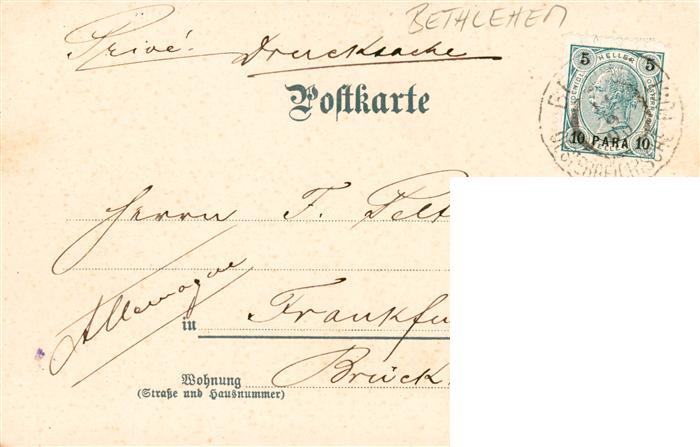 BETHLEHEM
Privé. Drucksache
Postkarte
5 HELLER 5
10 PARA 10
HELLER
OESTERREICHISCHE
Herrn F. Pelt
Allemagne
in Frankfu
Wohnung Brück
(Straße und Hausnummer)